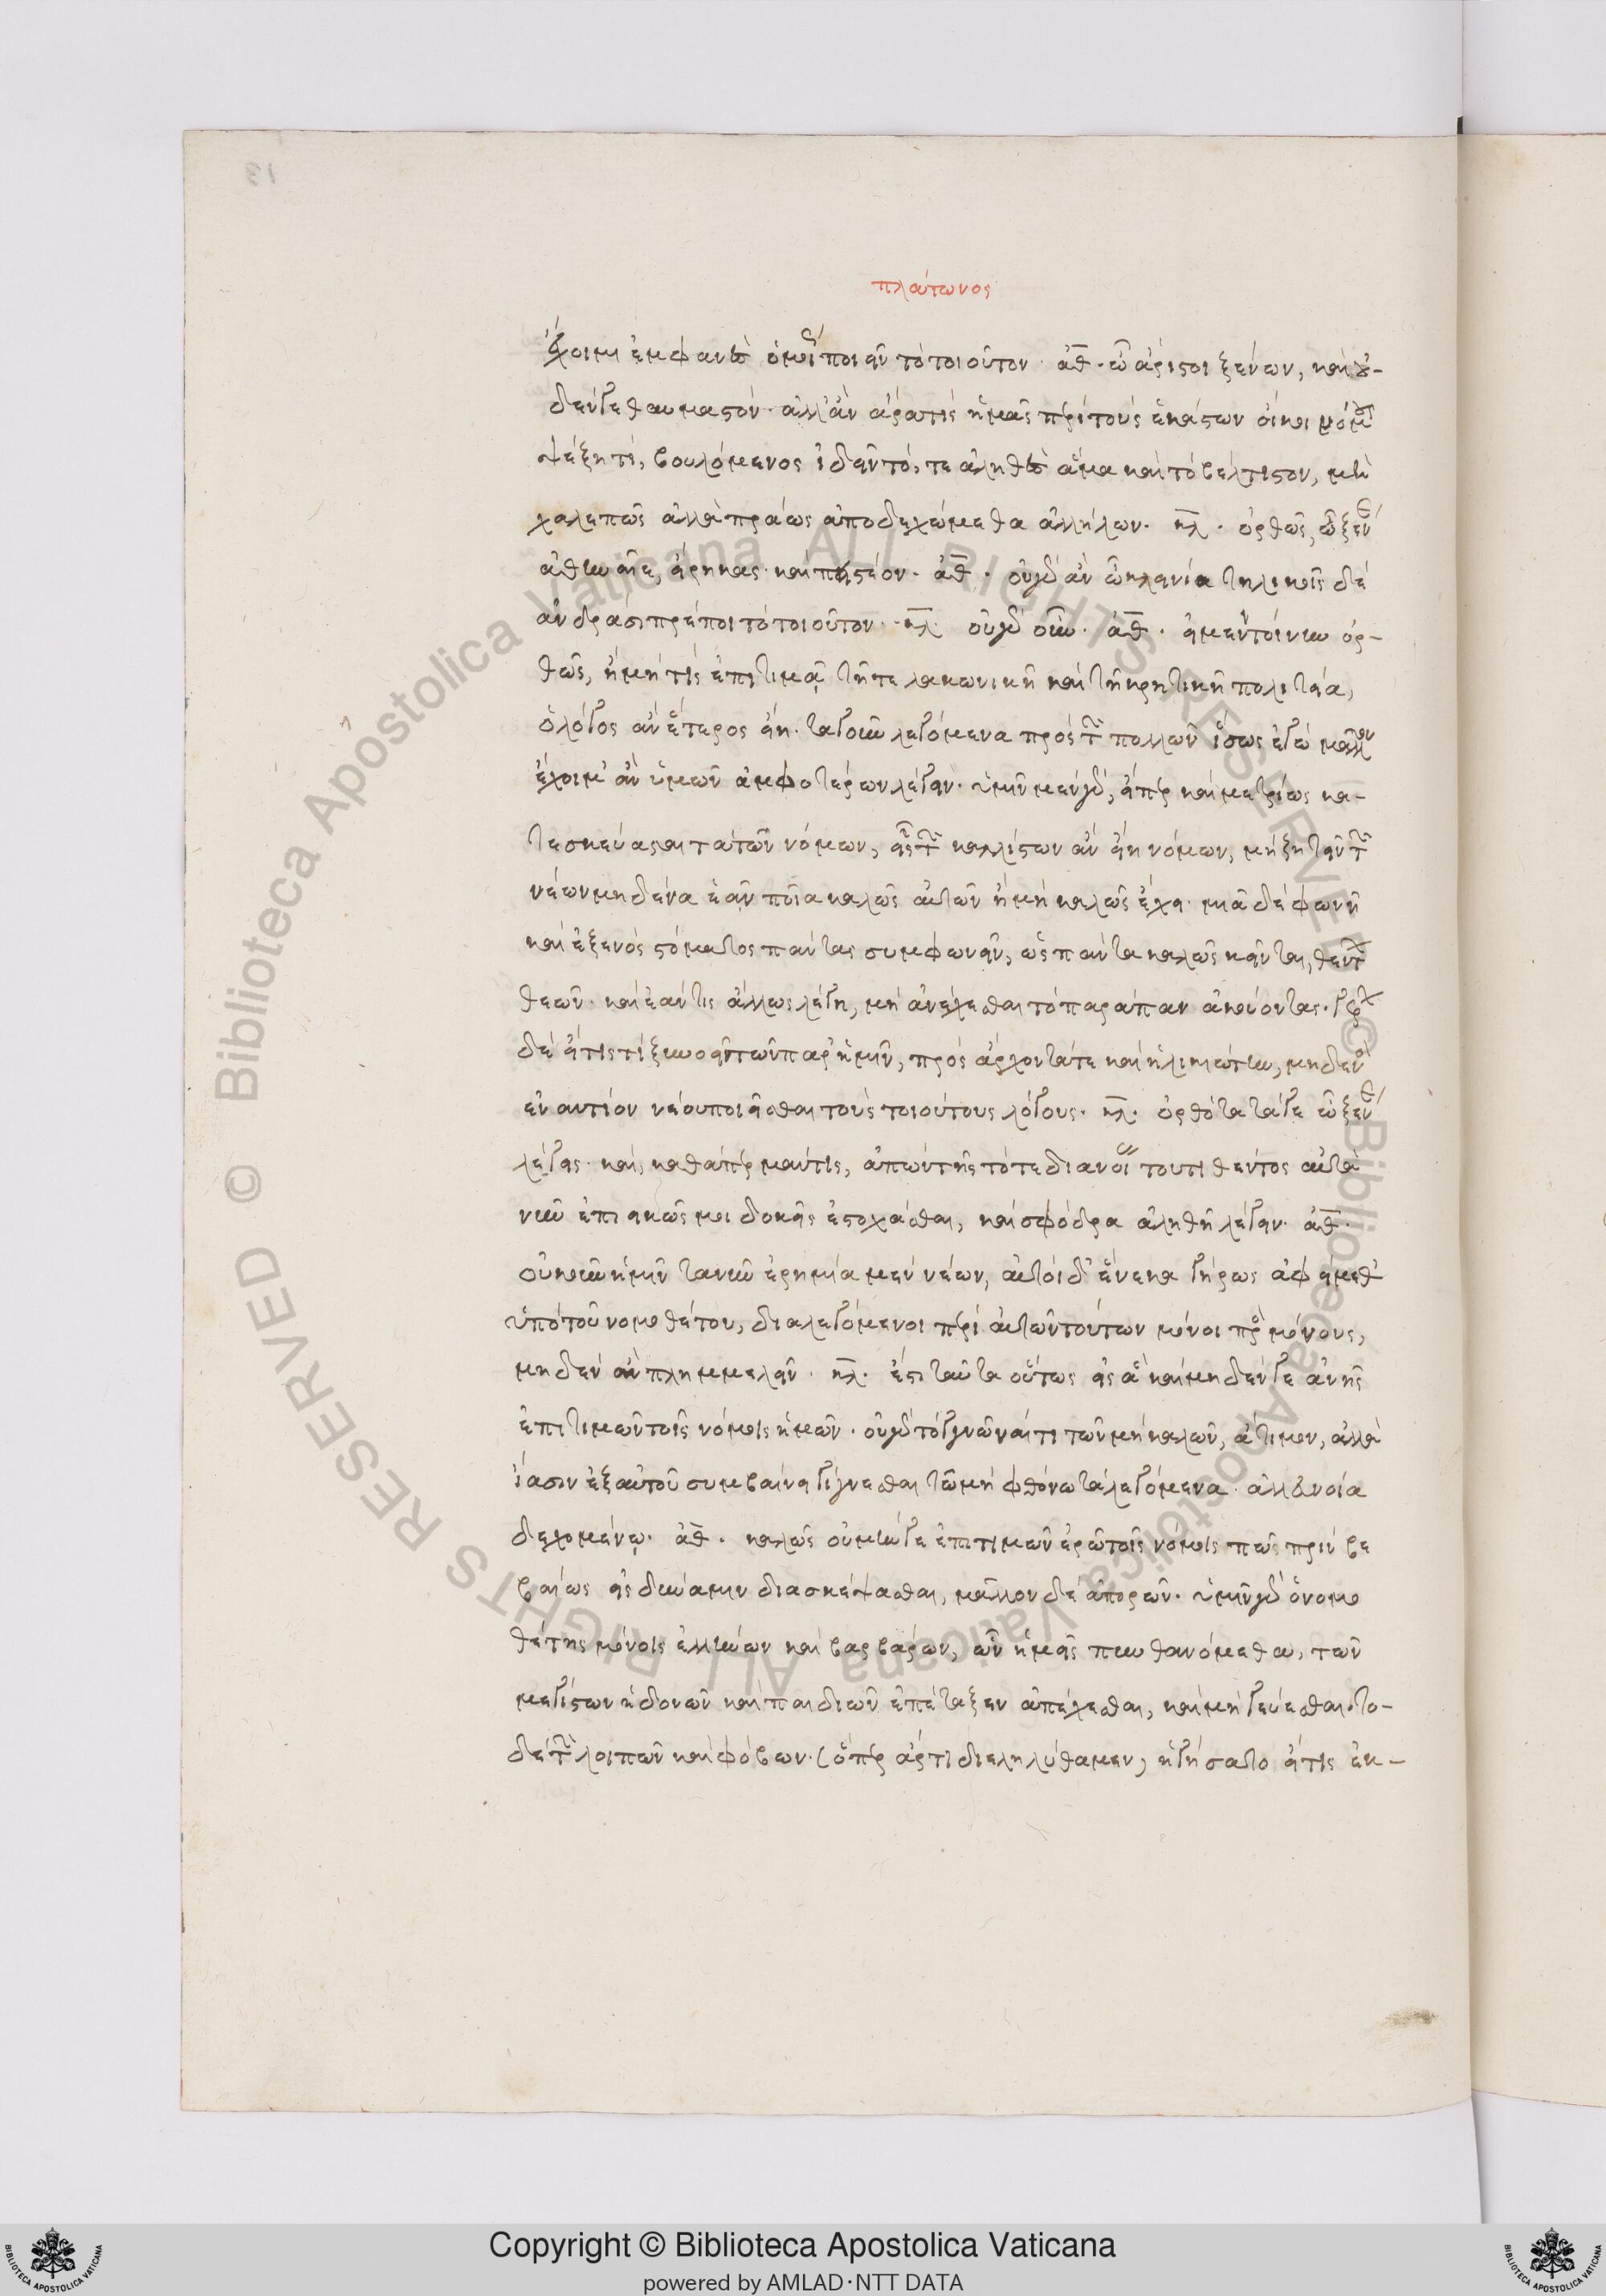 13
πλάτωνος
ἔχοιμι ἐμφανὲς ὑμῖν ποιεῖν τὸ τοιοῦτον. ἀθ. ὦ ἄριστοι ξένων, καὶ οὐ-
δέν γε θαυμαστόν. ἀλλ' ἂν ἄρα τίς ἡμᾶς περὶ τοὺς ἑκάστων οἴκοι νόμους
ψέξῃ τι, βουλόμενος ἰδεῖν τό, τε ἀληθὲς ἅμα καὶ τὸ βέλτιστον, μὴ
χαλεπῶς ἀλλὰ πράως ἀποδεχώμεθα ἀλλήλων. κλ. ὀρθῶς, ὦ ξένε
ἀθηναῖε, εἴρηκας. καὶ πειστέον. ἀθ. οὐ γὰρ ἂν ὦ κλεινία τηλικοῖς δέ
ἀνδράσι πρέποι τὸ τοιοῦτον. κλ. οὐ γὰρ οὖν. ἀθ. εἰ μὲν τοίνυν ὀρ-
θῶς, ἢ μή τις ἐπιτιμᾷ τῇ τε λακωνικῇ καὶ τῇ κρητικῇ πολιτείᾳ,
ὁ λόγος ἂν ἕτερος εἴη. τὰ γοῦν λεγόμενα πρὸς τῶν πολλῶν ἴσως ἐγὼ μᾶλλον
ἔχοιμ' ἂν ὑμῶν ἀμφοτέρων λέγειν. ὑμῖν μὲν γὰρ, εἴπερ καὶ μετρίως κα-
τεσκεύασται τὰ τῶν νόμων, εἷς τῶν καλλίστων ἂν εἴη νόμων, μὴ ζητεῖν τῶν
νέων μηδένα ἐᾶν ποῖα καλῶς αὐτῶν ἢ μὴ καλῶς ἔχει. μιᾷ δὲ φωνῇ
καὶ ἐξ ἑνὸς στόματος πάντας συμφωνεῖν, ὡς πάντα καλῶς κεῖνται, θέντων
θεῶν. καὶ ἐάν τις ἄλλως λέγῃ, μὴ ἀνέχεσθαι τὸ παράπαν ἀκούοντας. γέρων
δὲ εἴ τις τί ξυνοεῖ τῶν παρ' ἡμῖν, πρὸς ἄρχοντά τε καὶ ἡλικιώτην, μηδενὸς
ἐναντίον νέου ποιεῖσθαι τοὺς τοιούτους λόγους. κλ. ὀρθότατά γε ὦ ξένε
λέγεις. καὶ, καθάπερ μάντις, ἀπὼν τῆς τότε διανοίας τοῦ τιθέντος αὐτὰ
νῦν ἐπιεικῶς μοι δοκεῖς ἐστοχάσθαι, καὶ σφόδρα ἀληθῆ λέγειν. ἀθ.
οὐκοῦν ἡμῖν τανῦν ἐρημία μὲν νέων, αὐτοὶ δ' ἕνεκα γήρως ἀφείμεθ'
ὑπὸ τοῦ νομοθέτου, διαλεγόμενοι περὶ αὐτῶν τούτων μόνοι πρὸς μόνους,
μηδὲν ἂν πλημμελεῖν. κλ. ἔστι ταῦτα οὕτως εἰς ἃ καὶ μηδέν γε ἀνῇς
ἐπιτιμῶν τοῖς νόμοις ἡμῶν. οὐ γὰρ τὸ γνῶναί τι τῶν μὴ καλῶν, ἄτιμον, ἀλλὰ
ἴασιν ἐξ αὐτοῦ συμβαίνει γίγνεσθαι τῷ μὴ φθόνῳ τὰ λεγόμενα. ἀλλ' εὐνοίᾳ
δεχομένῳ. ἀθ. καλῶς οὐ μήν γε ἐπιτιμῶν ἐρῶ τοῖς νόμοις πῶς πρὶν βε
βαίως εἰς δύναμιν διασκέψασθαι, μᾶλλον δὲ ἀπορῶν. ὑμῖν γὰρ ὁ νομο
θέτης μόνοις ἑλλήνων καὶ βαρβάρων, ὧν ἡμεῖς πυνθανόμεθα, τῶν
μεγίστων ἡδονῶν καὶ παιδιῶν ἐπέταξεν ἀπέχεσθαι, καὶ μὴ γεύεσθαι. το-
δὲ τῶν λοιπῶν καὶ φόβων. (ὅπερ ἄρτι διεληλύθαμεν, ἡγήσατο εἴ τις ἐκ-
Copyright © Biblioteca Apostolica Vaticana
powered by AMLAD・NTT DATA